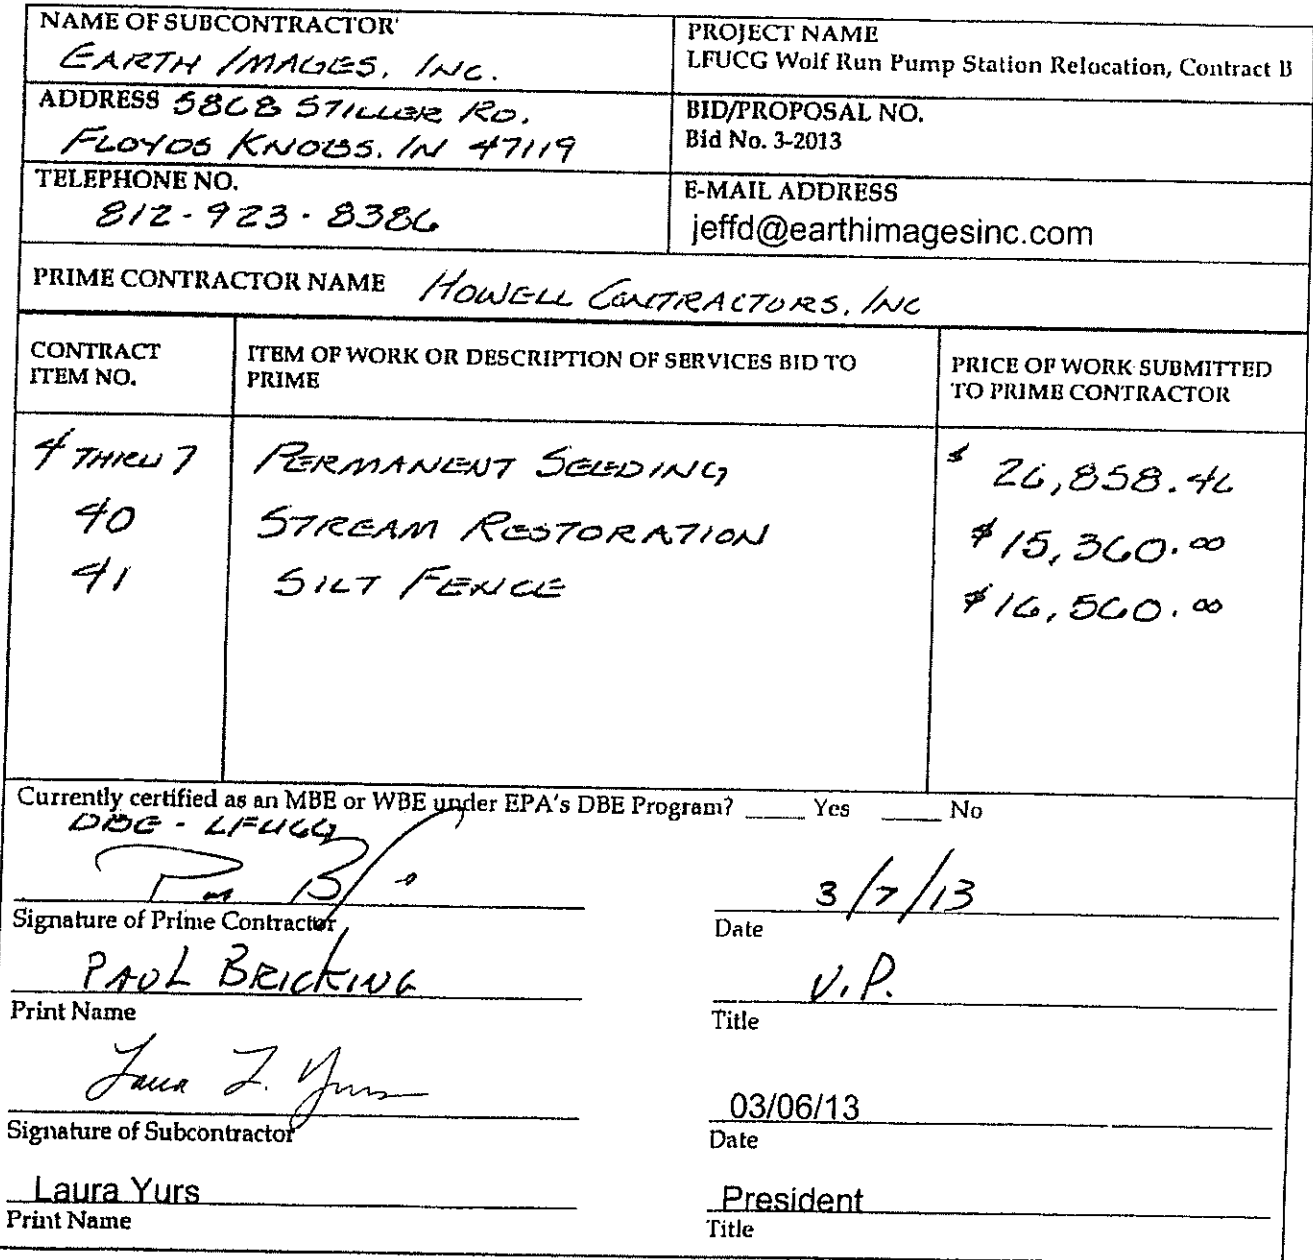 NAME OF SUBCONTRACTOR'
EARTH IMAGES, INC.
PROJECT NAME
LFUCG Wolf Run Pump Station Relocation, Contract B
ADDRESS 5868 STILLER RD.
FLOYDS KNOBS, IN 47119
BID/PROPOSAL NO.
Bid No. 3-2013
TELEPHONE NO.
812-923-8386
E-MAIL ADDRESS
jeffd@earthimagesinc.com
PRIME CONTRACTOR NAME HOWELL CONTRACTORS, INC
CONTRACT
ITEM NO.
ITEM OF WORK OR DESCRIPTION OF SERVICES BID TO
PRIME
PRICE OF WORK SUBMITTED
TO PRIME CONTRACTOR
4 THRU 7 PERMANENT SEEDING $ 26,858.46
40 STREAM RESTORATION $15,360.00
41 SILT FENCE $16,560.00
Currently certified as an MBE or WBE under EPA's DBE Program? _____ Yes _____ No
DBE - LFUCG
3/7/13
Signature of Prime Contractor
Date
PAUL BRICKING
V.P.
Print Name
Title
Laura L. Yurs
03/06/13
Signature of Subcontractor
Date
Laura Yurs
President
Print Name
Title